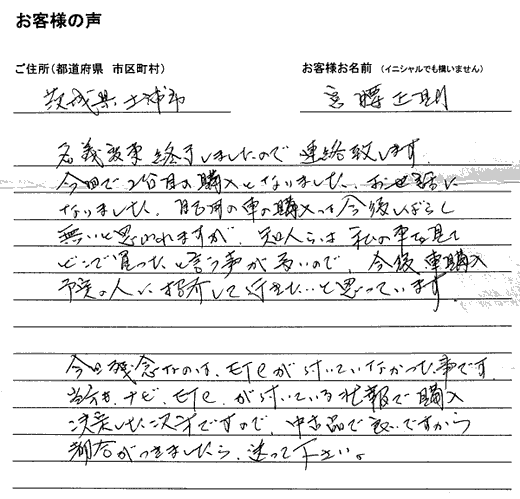 お客様の声
ご住所（都道府県　市区町村）
お客様お名前　（イニシャルでも構いません）
茨城県土浦市
宮腰正則
名義変更終了しましたので連絡致します。
今回で2台目の購入となりました。お世話に
なりました。自己用の車の購入は今後しばらく
無いと思われますが、知人らは私の車を見て
どこで買ったと言う声が多いので、今後、車購入
予定の人に紹介して行きた…と思っています。
今回残念なのは、ETCが付いていなかった事です。
当方も、ナビ、ETC、が付いている状報で購入
決定した次才ですので、中古品で良いですから
都合がつきましたら、送って下さい。